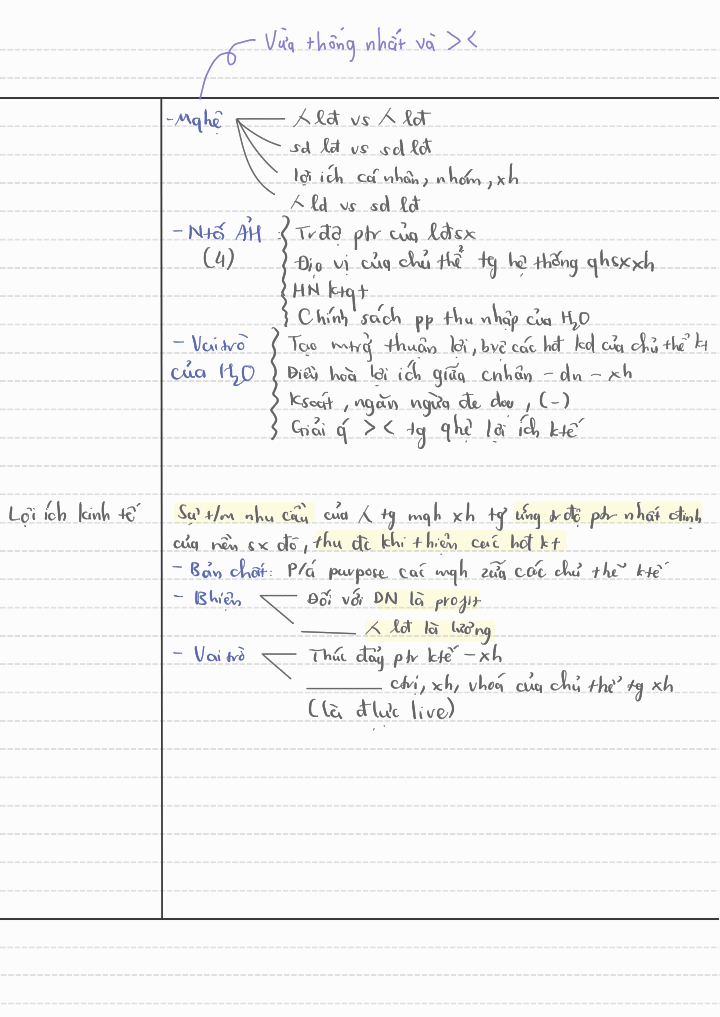 Vừa thống nhất và ><
- Mqhệ
人 lđ vs 人 lđ
sd lđ vs sd lđ
lợi ích cá nhân, nhóm, xh
人 lđ vs sd lđ
- Ntố ẢH :
(4)
Trđộ ptr của lđsx
Địa vị của chủ thể tg hệ thống qhsxxh
HN ktqt
Chính sách pp thu nhập của H₂O
- Vai trò
của H₂O
Tạo mtrg thuận lợi, bvệ các hđt kd của chủ thể kt
Điều hoà lợi ích giữa cnhân - dn - xh
Ksoát, ngăn ngừa đe doạ, (-)
Giải q́ >< tg qhệ lợi ích ktế
Lợi ích kinh tế
Sự t/m nhu cầu của 人 tg mqh xh tg ứng trđộ ptr nhất định
của nền sx đó, thu đc khi thiện các hđt kt
- Bản chất: P/á purpose các mqh zữa các chủ thể ktế
- Bhiện
Đối với DN là profit
人 lđ là lương
- Vai trò
Thúc đẩy ptr ktế - xh
ctrị, xh, vhoá của chủ thể tg xh
(là đlực live)